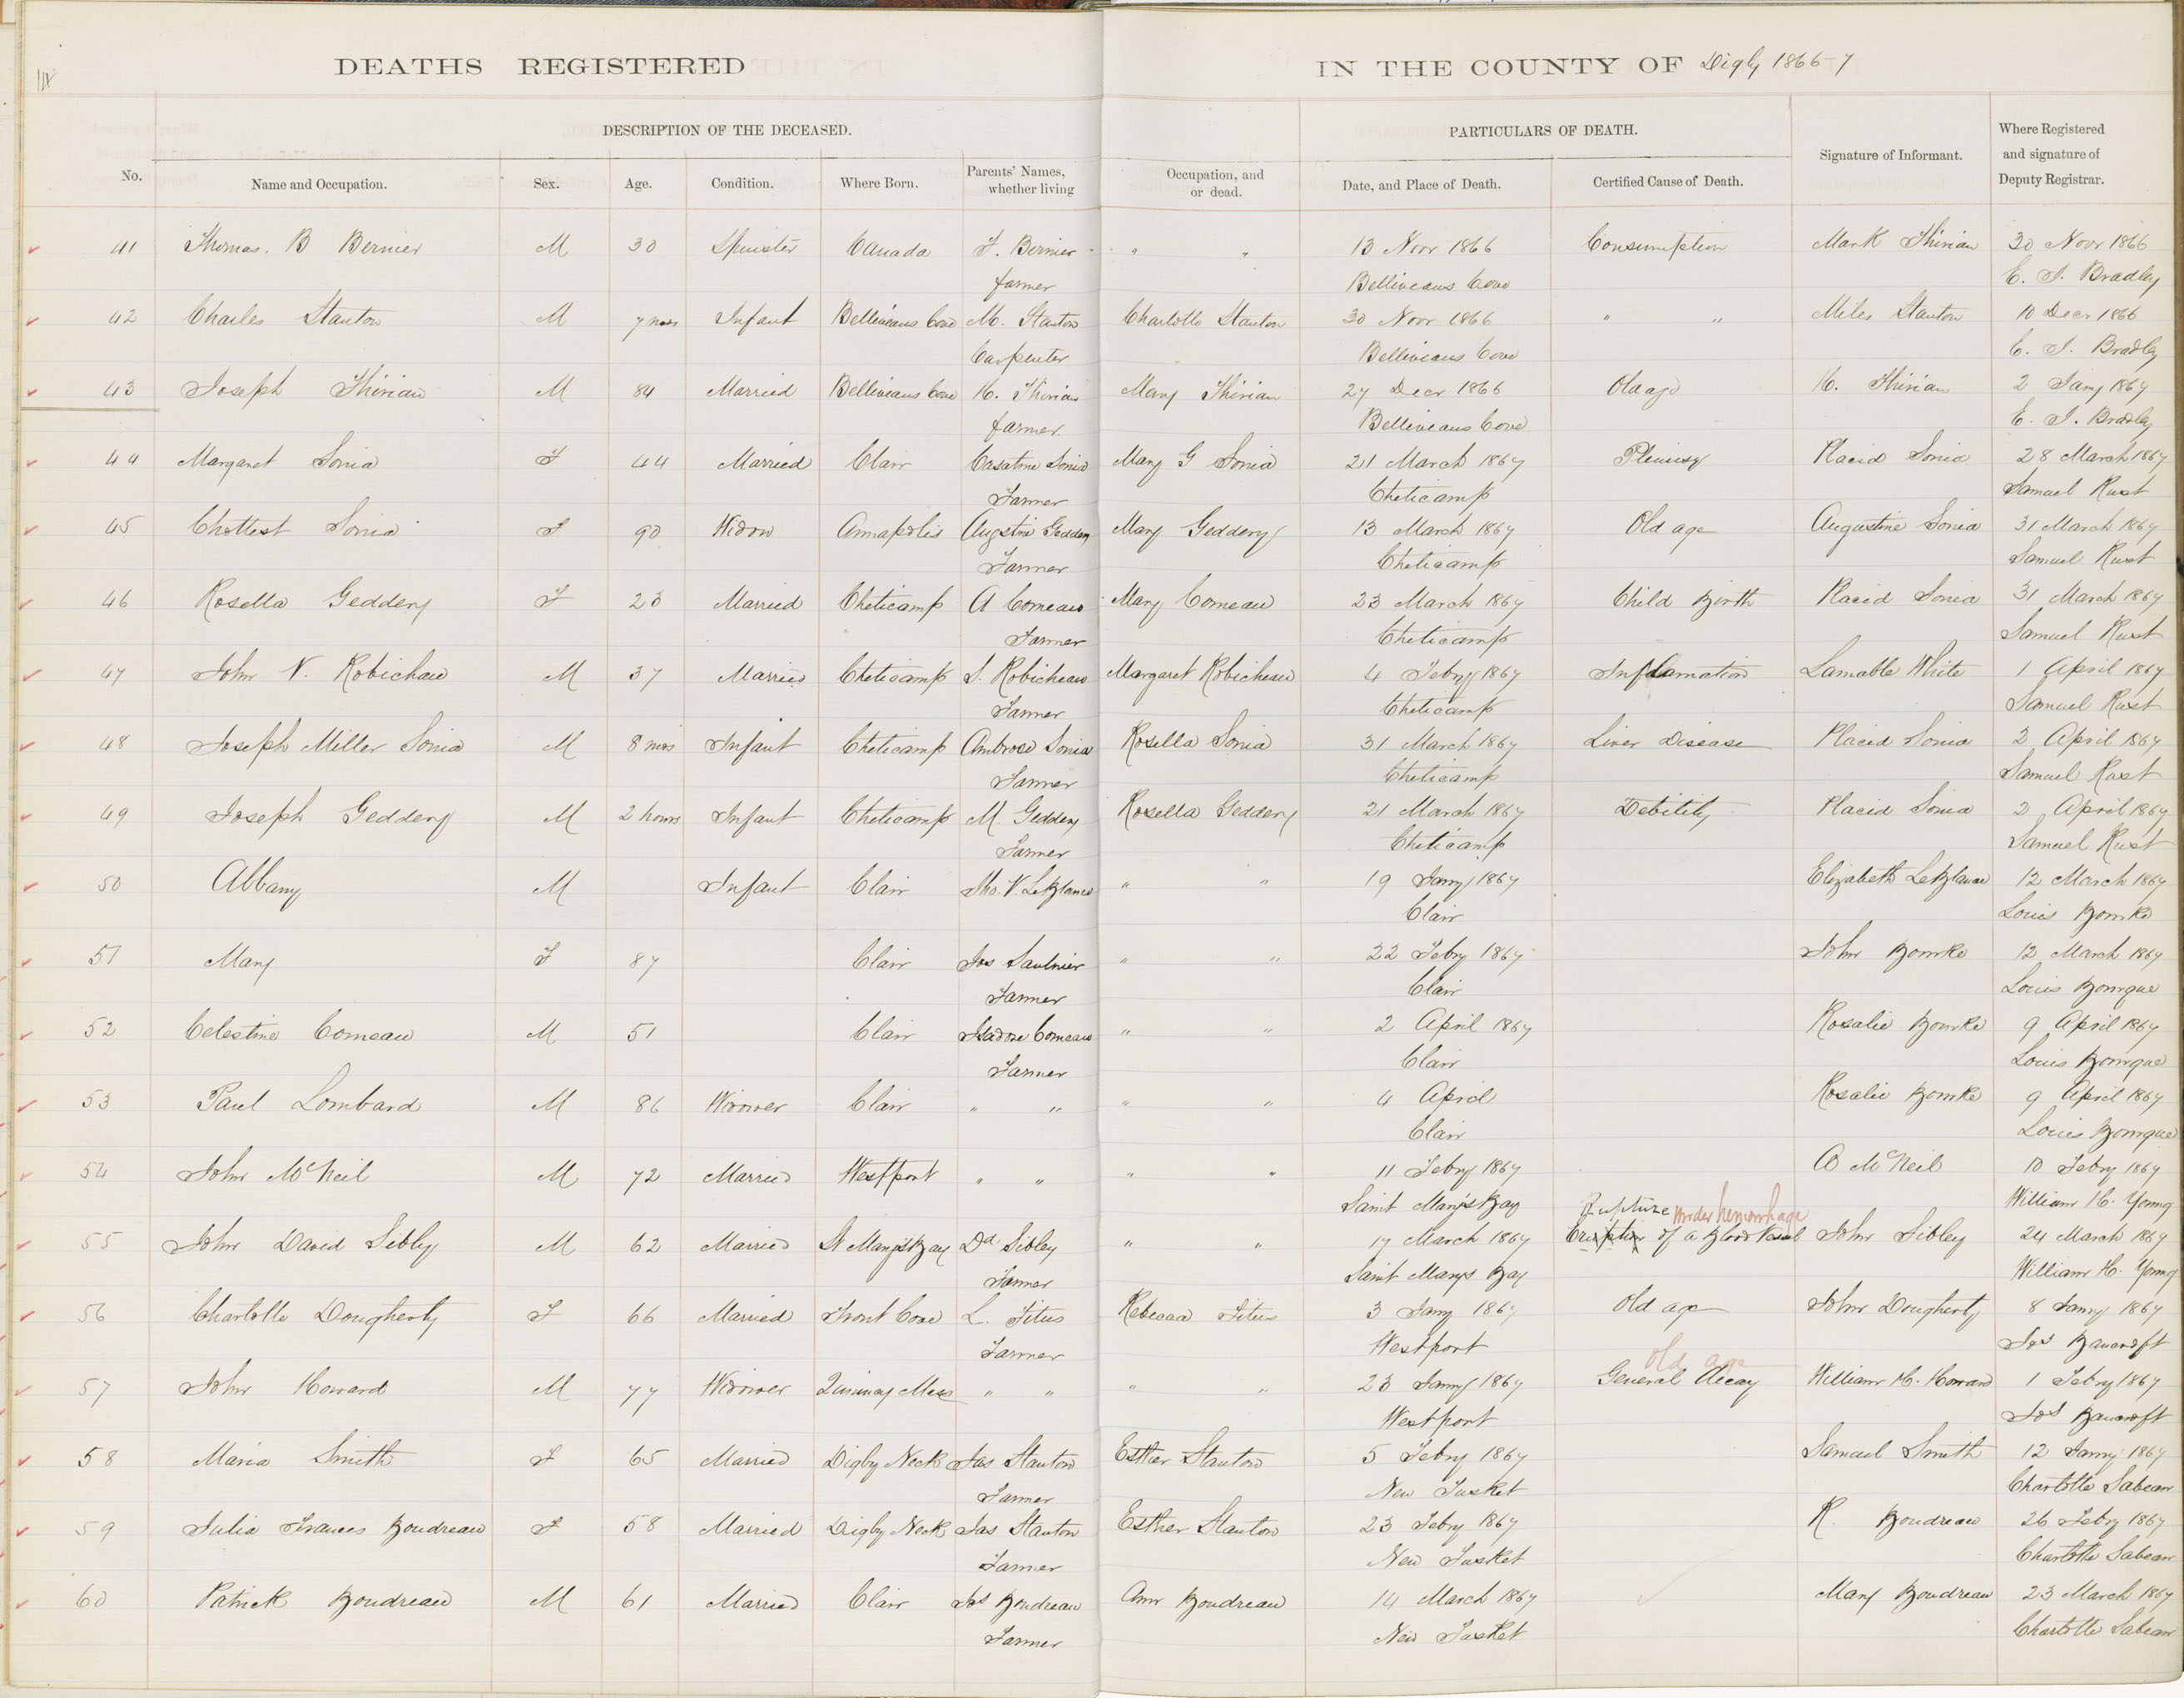 DEATHS REGISTERED IN THE COUNTY OF Digby 1866-7
DESCRIPTION OF THE DECEASED. PARTICULARS OF DEATH.
No. Name and Occupation. Sex. Age. Condition. Where Born. Parents' Names, whether living Occupation, and or dead. Date, and Place of Death. Certified Cause of Death. Signature of Informant. Where Registered and signature of Deputy Registrar.
41 Thomas. B Bernier M 30 Spinister Canada F. Bernier " " 13 Novr 1866 Consumption Mark Thirian 30 Novr 1866
farmer Belliveaus Cove E. S. Bradley
42 Charles Stanton M 7 mos Infant Belliveaus Cove M. Stanton Charlotte Stanton 30 Novr 1866 " " Miles Stanton 10 Decr 1866
Carpenter Belliveaus Cove E. S. Bradley
43 Joseph Thirian M 84 Married Belliveaus Cove H. Thirian Mary Thirian 27 Decr 1866 Old age H. Thirian 2 Jany 1867
farmer. Belliveaus Cove E. S. Bradley
44 Margaret Sonia F 44 Married Clair Casatine Sonia Mary G Sonia 21 March 1867 Pleurisy Placid Sonia 28 March 1867
Farmer Cheticamp Samuel Rust
45 Chottest Sonia F 90 Widow Annapolis Augstine Geddery Mary Geddery 13 March 1867 Old age Augustine Sonia 31 March 1867
Farmer Cheticamp Samuel Rust
46 Rosella Geddery F 23 Married Cheticamp A Comeau Mary Comeau 23 March 1867 Child Birth Placid Sonia 31 March 1867
Farmer Cheticamp Samuel Rust
47 John N. Robichau M 37 Married Cheticamp S. Robicheau Margaret Robicheau 4 Febry 1867 Inflamation Lamable White 1 April 1867
Farmer Cheticamp Samuel Rust
48 Joseph Miller Sonia M 8 mos Infant Cheticamp Ambrose Sonia Rosella Sonia 31 March 1867 Liver Disease Placid Sonia 2 April 1867
Farmer Cheticamp Samuel Rust
49 Joseph Geddery M 2 hours Infant Cheticamp M. Geddery Rosella Geddery 21 March 1867 Debility Placid Sonia 2 April 1867
Farmer Cheticamp Samuel Rust
50 Albany M Infant Clair Tho. N. LeBlance " " 19 Jany 1867 Elizabeth LeBlance 12 March 1867
Clair Louis Bourke
51 Mary F 87 Clair Jos Saulnier " " 22 Febry 1867 John Bourke 12 March 1867
Farmer Clair Louis Bourque
52 Celestine Comeau M 51 Clair Isadore Comeau " " 2 April 1867 Rosalie Bourke 9 April 1867
Farmer Clair Louis Bourque
53 Paul Lombard M 86 Widower Clair " " " " 4 April Rosalie Bourke 9 April 1867
Clair Louis Bourque
54 John McNeil M 72 Married Westport " " " " 11 Febry 1867 A McNeil 10 Febry 1867
Saint Marys Bay William H. Young
Rupture under hemorrhage
55 John David Sibly M 62 Married St Marys Bay Dd Sibley " " 17 March 1867 Eruption of a Blood Vessel John Sibley 24 March 1867
Farmer Saint Marys Bay William H. Young
56 Charlotte Dougherty F 66 Married Trout Cove L. Titus Rebecca Titus 3 Jany 1867 Old age John Dougherty 8 Jany 1867
Farmer Westport Jos Bancroft
Old age
57 John Howard M 77 Widower Quinncy Mass " " " " 23 Jany 1867 General Decay William H. Howard 1 Febry 1867
Westport Jos Bancroft
58 Maria Smith F 65 Married Digby Neck Jas Stanton Esther Stanton 5 Febry 1867 Samuel Smith 12 Jany 1867
Farmer New Tusket Charlotte Sabean
59 Julia Frances Boudreau F 58 Married Digby Neck Jas Stanton Esther Stanton 23 Febry 1867 R. Boudreau 26 Febry 1867
Farmer New Tusket Charlotte Sabean
60 Patrick Boudreau M 61 Married Clair Jos Boudreau Ann Boudreau 14 March 1867 Mary Boudreau 23 March 1867
Farmer New Tusket Charlotte Sabean